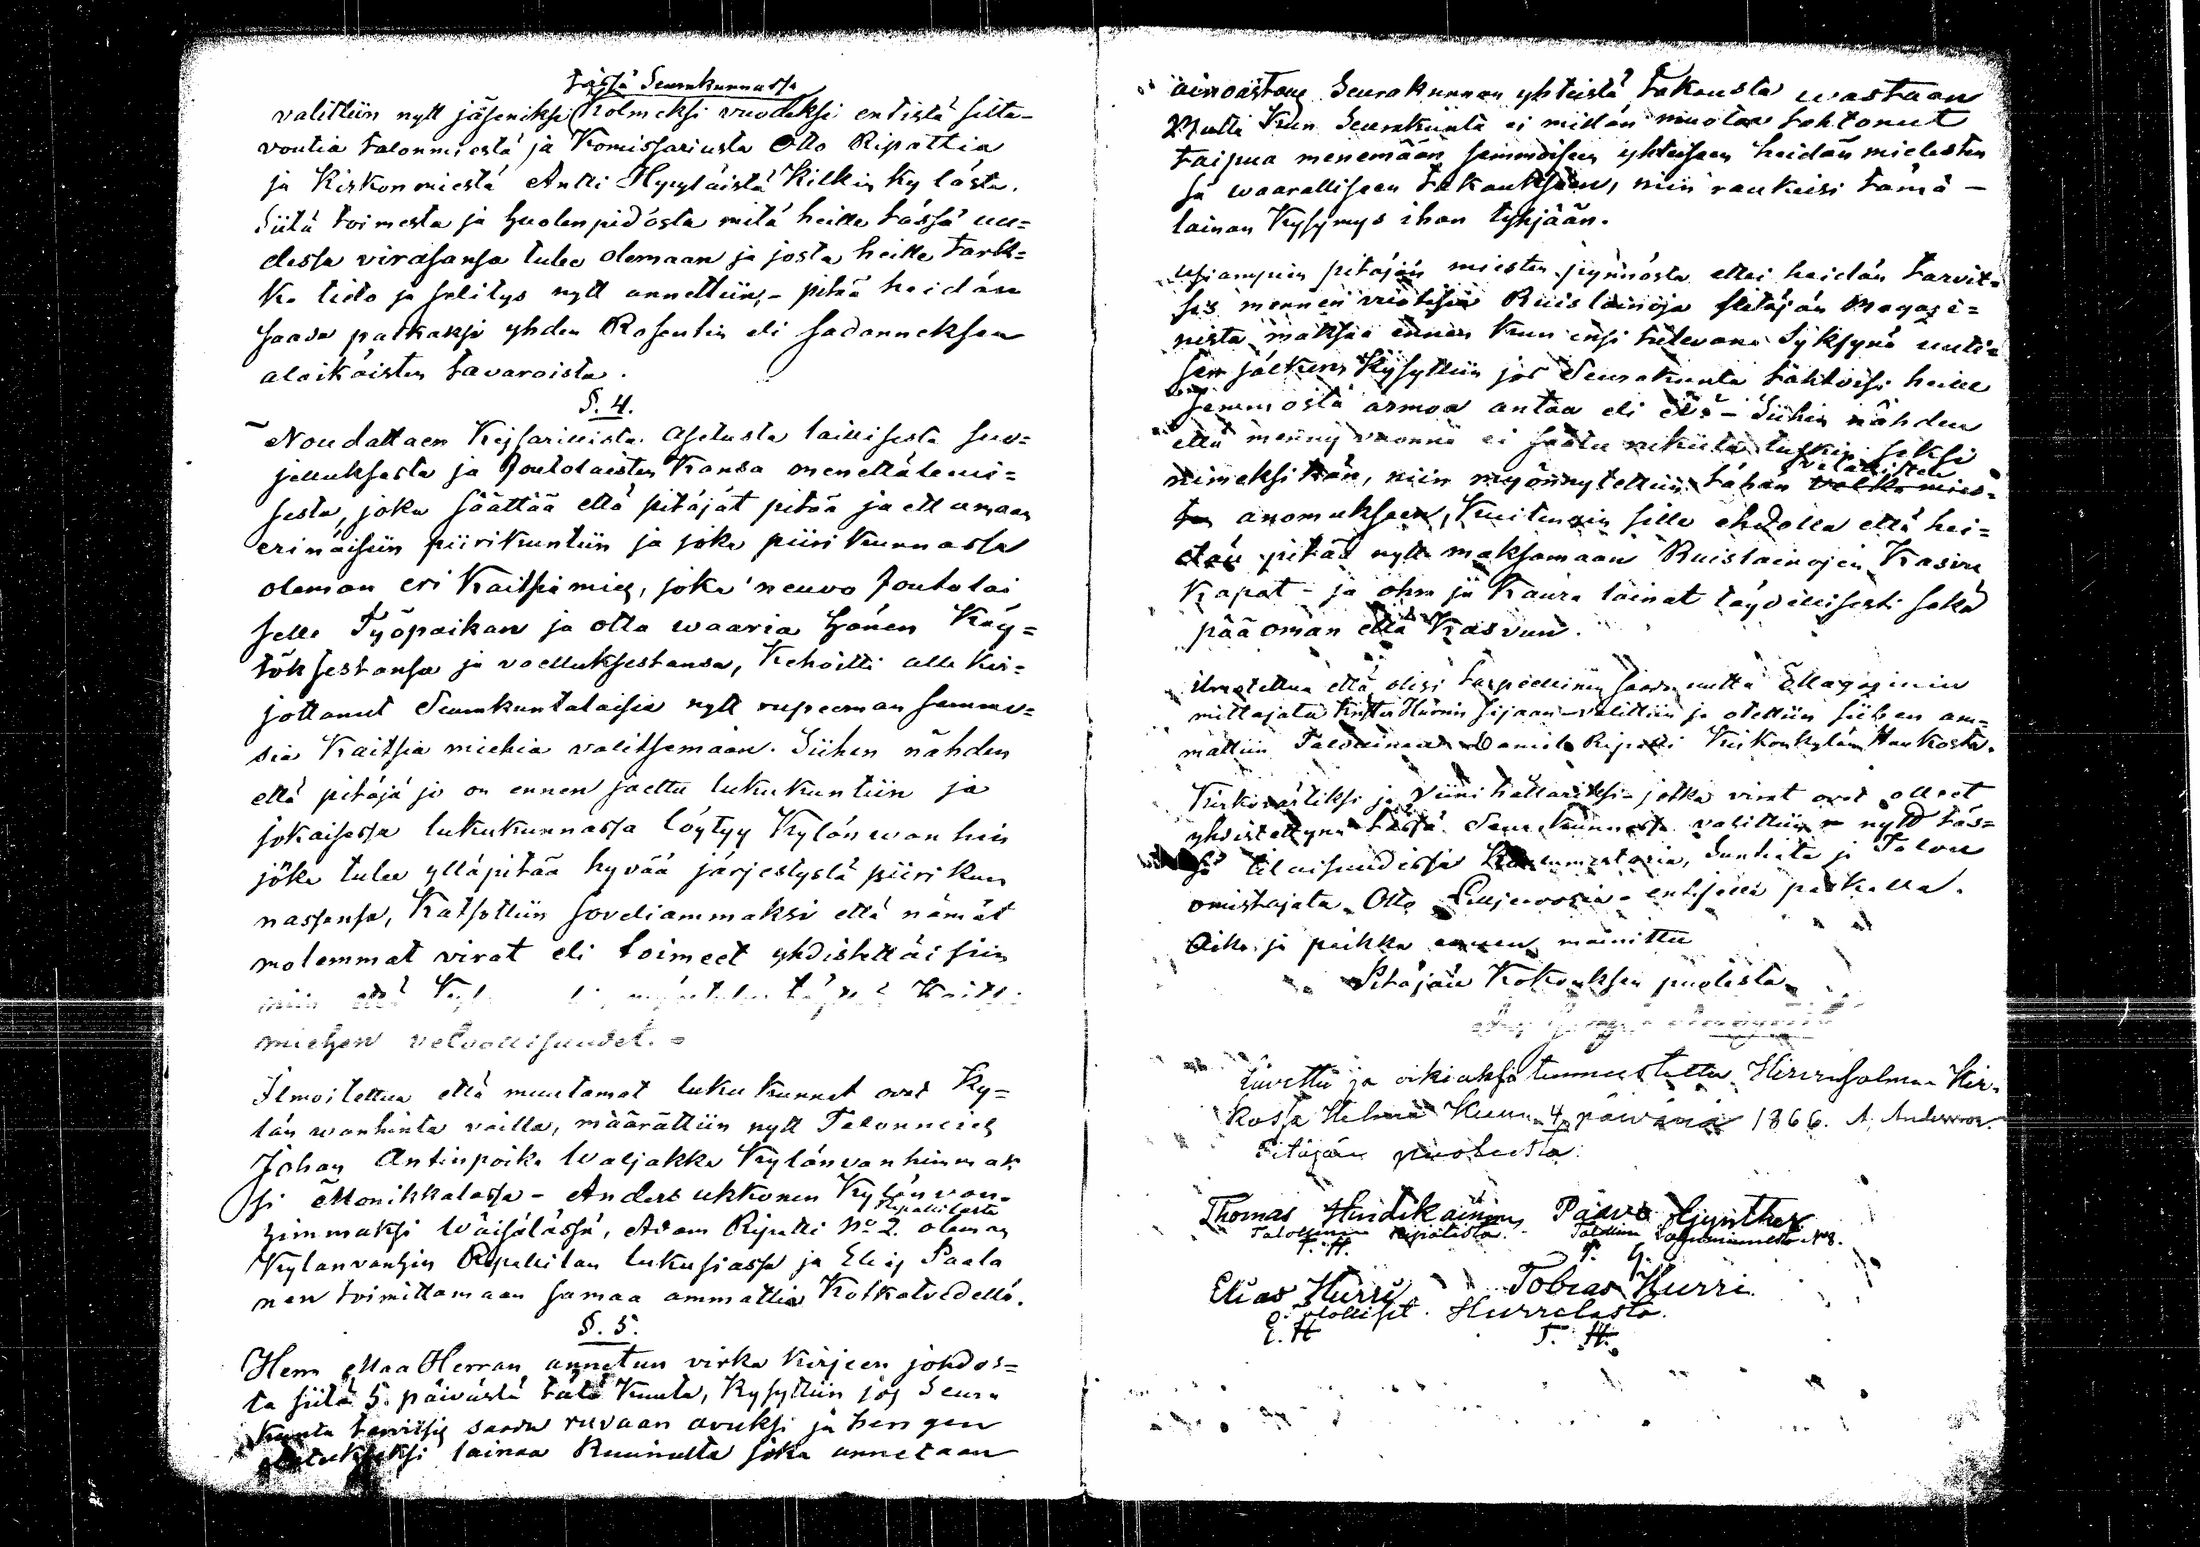 tässä Seurakunnassa
valittiin nytt jäseniksi kolmeksi vuodeksi entistä silta-
voutia talonmiestä ja Komissariusta Otto Ripattia
ja Kirkonmiestä Antti Hyyläistä Kilkin kylästä.
Siitä toimesta ja huolenpidosta mitä heille tässä uu=
dessa virasansa tulee olemaan ja josta heille tark=
ka tieto ja selitys nytt annettiin, - pitää heidän
saada palkaksi yhden Rosentin eli sadanneksen
alaikäisten tavaroista.
§. 4.
Noudattaen Keisarillista Asetusta laillisesta suo=
jelluksesta ja Joutolaisten Kansa menettälemi=
sestä, joka säättää että pitäjät pitää ja ettumaan
erinäisiin piirikuntiin ja joka piirikunnassa
oleman eri Kaitsiamies, joka neuvo Joutolai
selle Työpaikan ja otta waaria hänen Käy=
töksestänsä ja vaelluksestansa, kehoitti alle kir=
jottanut Seurakuntalaisia nytt rupeeman semmo=
sia Kaitsia miehiä valitsemaan. Siihen nähden
että pitäjä jo on ennen jaettu lukukuntiin ja
jokaisessa lukukunnassa löytyy Kylänwanhin
joka tulee ylläpitää hyvää järjestystä piirikun
nassansa, Katsottiin soveliammaksi että nämät
molemmat virat eli toimeet yhdistettäisiin
niin että
miehen velvollisuudet. =
Ilmoitettua että muutamat lukukunnat ovat Ky=
län wanhinta vailla, määrättiin nytt Talonmies
Johan Antinpoika Waljakka Kylänvanhimmak
si Monikkalassa - Anders Ukkonen Kylänvan=
himmaksi Wäisälässä, Adam Ripatti No 2. Ripatilasta oleman
Kylanvanhin Ripatilan lukusiassa ja Elias Paala
nen toimittamaan samaa ammattia Kotkatvedellä.
§. 5.
Herr Maa Herran annetun virka kirjeen johdos=
ta siitä 5. päivästä tätä Kuuta, Kysyttiin jos Seura
kunta tarvitsis saada ruvaan avuksi ja hengen
elatukseksi lainaa Ruunulta joka annetaan
ainoastans Seurakunnan yhteistä takausta wastaan
Mutta kun Seurakunta ei millän muotoa tahtonut
taipua menemään semmoiseen yhteiseen heidän mielesten
sä waaralliseen takaukseen, niin raukeisi tämä -
lainan Kysymys ihan tyhjään.
usiampien pitäjän miesten pyynnöstä ettei heidän tarvit=
sis mennen vuotisia Ruis lainoja Pitäjän Magasi=
nista maksaa ennen kun ensi tulevana Syksynä uuti=
sen jälkeen Kysyttiin jos Seurakunta tahtoisi heille
semmosta armoa antaa eli ei - Siihen nähden
että menny vuonna ei saatu rukiita tuskin seksi
nimeksikän, niin myönnytettiin tähän velallisten
anomukseen, Kuitengin sillä ehdolla että hei=
dän pitää nytt maksamaan Ruislainojen Kasvu
Kapat - ja ohra ja Kaura lainat täydellisesti sekä
pää oman että Kasvun.
ilmotettua että olisi tarpeellinen saada uutta Magasinin
mittajata Knut Hurrin sijaan - valittiin ja otettiin siihen am=
mattiin Talollinen Daniel Ripatti Kirkonkylän Haukosta.
Kirkovärtiksi ja Viini Kellariksi - jotka virat ovat olleet
yhdistettynä tässä Seurakunnassa valittiin nytt täs=
sä tilaisuudessa ja Talon
omistajata Otto - entisellä palkalla.
Aika ja paikka ennen mainittu
Pitäjän Kokouksen puolesta
Luvettu ja oikiaksi tunnustettu Hirvensalmen Kir-
kossa Helme Kuun 4 päivänä 1866. A. Andersson.
Pitäjän puolesta:
Thomas Hindikainen Paavo Gynther
Talollinen Ripatilasta. Talollinen No 8.
T. H. P. G.
Elias Hurri Tobias Hurri
Talolliset Hurrilasta.
E. H T. H.